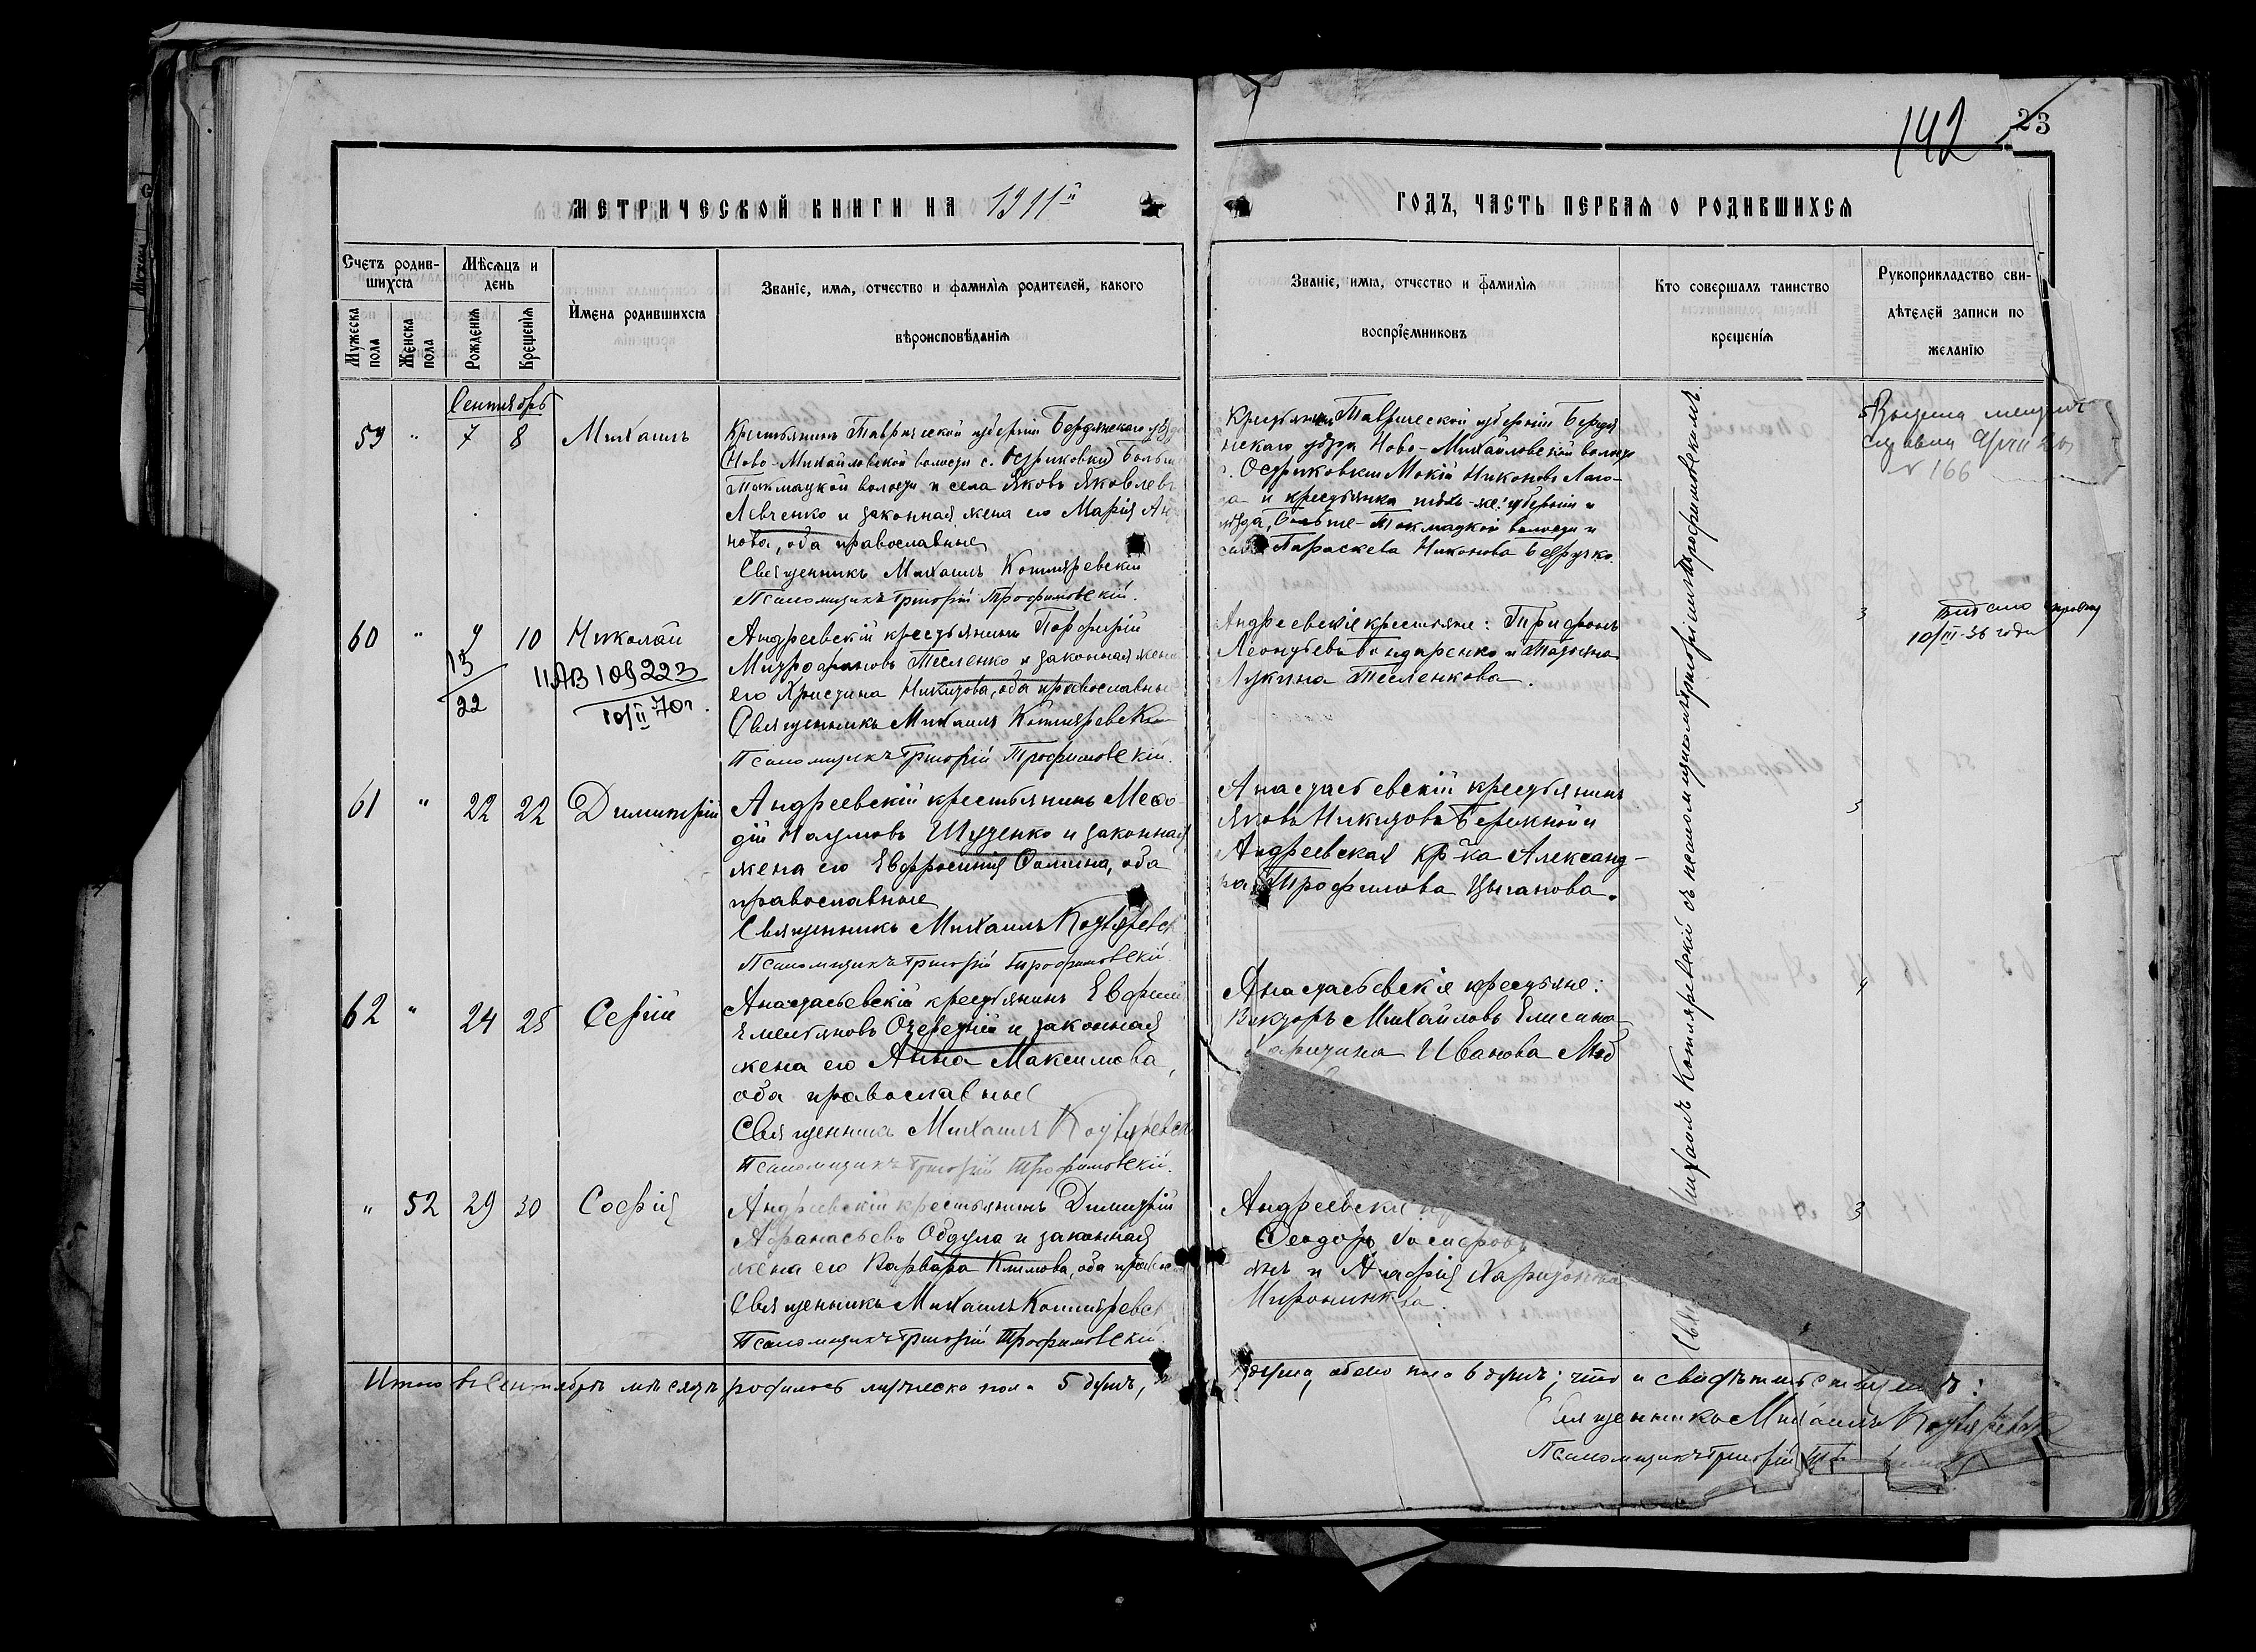 142
23
МЕТРИЧЕСКОЙ КНИГИ НА 1911й
ГОДЪ, ЧАСТЬ ПЕРВАЯ О РОДИВШИХСЯ
Счетъ родив-
шихся
Мужеска пола
Женска пола
Мѣсяцъ и
день
Рожденія
Крещенія
Имена родившихся
Званіе, имя, отчество и фамилія родителей, какого
вѣроисповѣданія
Званіе, имя, отчество и фамилія
воспріемниковъ
Кто совершалъ таинство
крещенія
Рукоприкладство сви-
дѣтелей записи по
желанію
Сентябрь
59 " 7 8 Михаилъ
Крестьянинъ Таврической губерніи Бердянскаго
Ново-Михайловской волости с. Остриковки
Токмацкой волости и села Яковъ Яковлевъ
Левченко и законная жена его Марія
нова, оба православные
Священникъ Михаилъ Котляревскій
Псаломщикъ Григорій Трофимовскій.
Таврической губерніи Бердя
нскаго уѣзда Ново-Михайловской волости
с. Остриковки Мокій Никоновъ
и крестьянка тѣхъ-же: губерніи и
уѣзда, Больше-Токмацкой волости и
села Параскева Никонова
№ 166
60 " 9 10 Николай
13
22
IIАВ 109223
10/II 70г.
Андреевскій крестьянинъ Порфирій
Митрофановъ Тесленко и законная жена
его Христина Никитова, оба православные
Священникъ Михаилъ Котляревскій
Псаломщикъ Григорій Трофимовскій.
Андреевскіе крестьяне: Трифонъ
Леонтьевъ Бондаренко и Татьяна
Лукина Тесленкова.
10/III-36 года
61 " 22 22 Димитрій
Андреевскій крестьянинъ Меѳо-
дій Наумовъ Шутенко и законная
жена его Евфросинія Ѳомина, оба
православные
Священникъ Михаилъ Котляревск
Псаломщикъ Григорій Трофимовскій
Анастасьевскій крестьянинъ
Яковъ Никитовъ Бережной и
Андреевская кр-ка Александ-
ра Трофимова Цыганова.
62 " 24 25 Сергій
Анастасьевскій крестьянинъ Евфимій
Емельяновъ и законная
жена его Анна Максимова,
оба православные
Священникъ Михаилъ Котляревск
Псаломщикъ Григорій Трофимовскій.
Анастасьевскіе крестьяне:
Викторъ Михайловъ
Иванова
" 52 29 30 Софія
Андреевскій крестьянинъ Димитрій
Афанасьевъ Обдула и законная
жена его Варвара Климова, оба
Священникъ Михаилъ Котляревск
Псаломщикъ Григорій Трофимовскій.
Андреевскі
Ѳеодоръ
и Агафія Харитонова
Священникъ Михаилъ Котляревскій съ псаломщикомъ Григоріемъ Трофимовскимъ.
Итого въ Сентябрѣ мѣсяцѣ родилось мужеска пола 5 душъ,
душа, обоего пола 6 душъ; что и свидѣтельствуемъ:
Священникъ Михаилъ Котляревск
Псаломщикъ Григорій